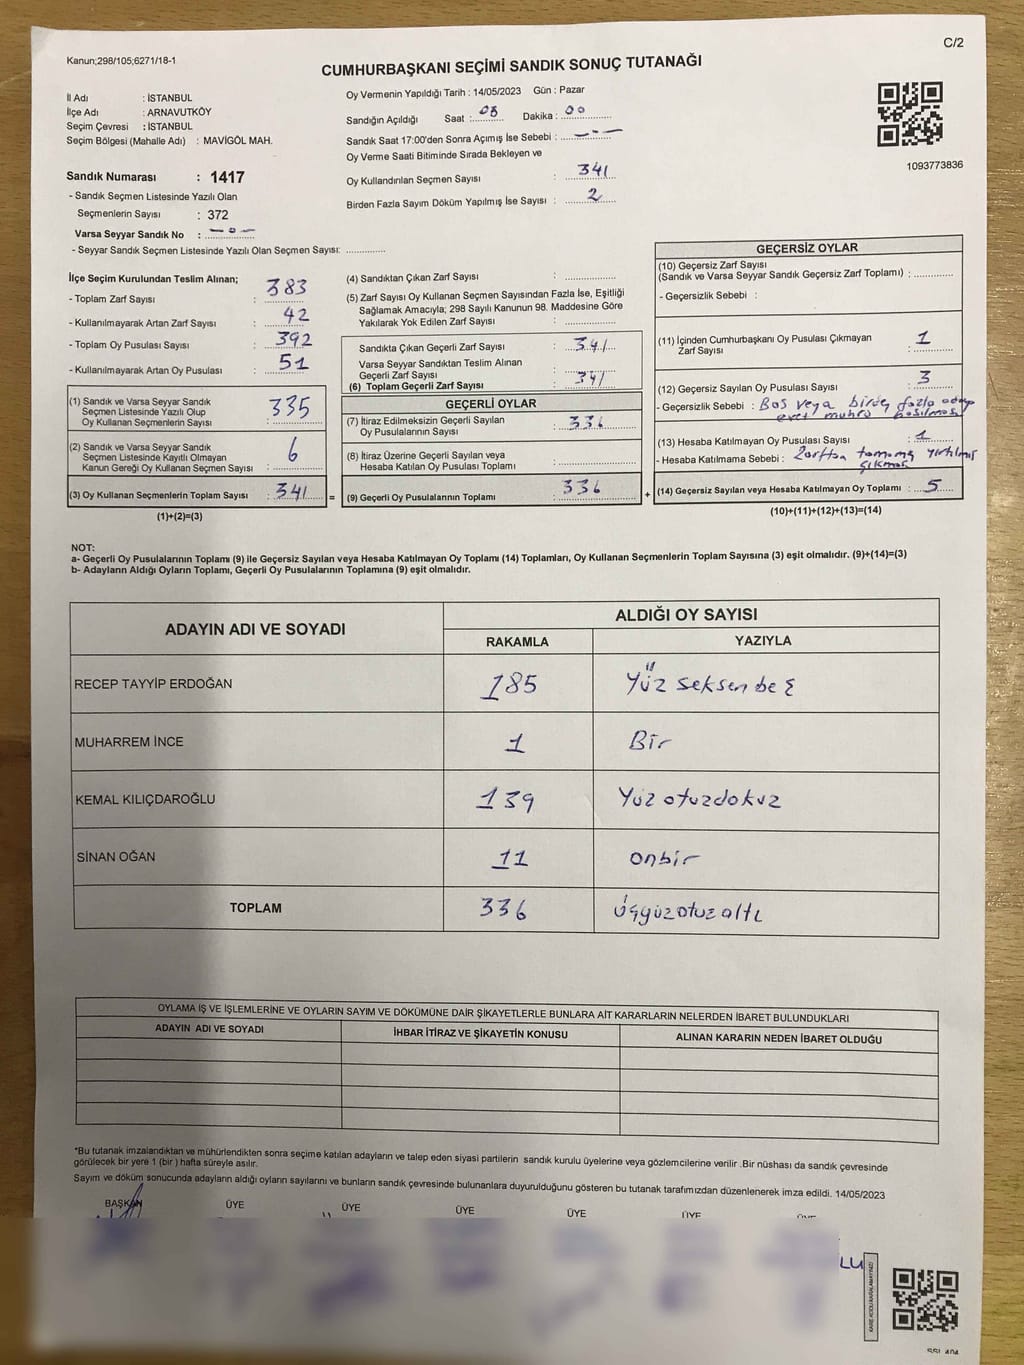 Kanun;298/105;6271/18-1
C/2
CUMHURBAŞKANI SEÇİMİ SANDIK SONUÇ TUTANAĞI
İl Adı : İSTANBUL
İlçe Adı : ARNAVUTKÖY
Seçim Çevresi : İSTANBUL
Seçim Bölgesi (Mahalle Adı) : MAVİGÖL MAH.
Sandık Numarası : 1417
- Sandık Seçmen Listesinde Yazılı Olan
Seçmenlerin Sayısı : 372
Varsa Seyyar Sandık No : -o-
- Seyyar Sandık Seçmen Listesinde Yazılı Olan Seçmen Sayısı: ............
Oy Vermenin Yapıldığı Tarih : 14/05/2023 Gün : Pazar
Sandığın Açıldığı Saat : 08 Dakika : 00
Sandık Saat 17:00'den Sonra Açımış İse Sebebi : - . -
Oy Verme Saati Bitiminde Sırada Bekleyen ve
Oy Kullandırılan Seçmen Sayısı : 341
Birden Fazla Sayım Döküm Yapılmış İse Sayısı : 2
1093773836
İlçe Seçim Kurulundan Teslim Alınan;
- Toplam Zarf Sayısı : 383
- Kullanılmayarak Artan Zarf Sayısı : 42
- Toplam Oy Pusulası Sayısı : 392
- Kullanılmayarak Artan Oy Pusulası : 51
(1) Sandık ve Varsa Seyyar Sandık
Seçmen Listesinde Yazılı Olup
Oy Kullanan Seçmenlerin Sayısı : 335
(2) Sandık ve Varsa Seyyar Sandık
Seçmen Listesinde Kayıtlı Olmayan
Kanun Gereği Oy Kullanan Seçmen Sayısı : 6
(3) Oy Kullanan Seçmenlerin Toplam Sayısı : 341 =
(1)+(2)=(3)
(4) Sandıktan Çıkan Zarf Sayısı : ............
(5) Zarf Sayısı Oy Kullanan Seçmen Sayısından Fazla İse, Eşitliği
Sağlamak Amacıyla; 298 Sayılı Kanunun 98. Maddesine Göre
Yakılarak Yok Edilen Zarf Sayısı : ............
Sandıkta Çıkan Geçerli Zarf Sayısı : 341
Varsa Seyyar Sandıktan Teslim Alınan
Geçerli Zarf Sayısı :
(6) Toplam Geçerli Zarf Sayısı : 341
GEÇERLİ OYLAR
(7) İtiraz Edilmeksizin Geçerli Sayılan
Oy Pusulalarının Sayısı : 336
(8) İtiraz Üzerine Geçerli Sayılan veya
Hesaba Katılan Oy Pusulası Toplamı : ............
(9) Geçerli Oy Pusulalarının Toplamı : 336 +
GEÇERSİZ OYLAR
(10) Geçersiz Zarf Sayısı
(Sandık ve Varsa Seyyar Sandık Geçersiz Zarf Toplamı) : ............
- Geçersizlik Sebebi :
(11) İçinden Cumhurbaşkanı Oy Pusulası Çıkmayan
Zarf Sayısı : 1
(12) Geçersiz Sayılan Oy Pusulası Sayısı : 3
- Geçersizlik Sebebi : Boş veya birden fazla adaya
evet mührü basılması
(13) Hesaba Katılmayan Oy Pusulası Sayısı : 1
- Hesaba Katılmama Sebebi : Zarftan tamamı yırtılmış
çıkması
(14) Geçersiz Sayılan veya Hesaba Katılmayan Oy Toplamı : 5
(10)+(11)+(12)+(13)=(14)
NOT:
a- Geçerli Oy Pusulalarının Toplamı (9) ile Geçersiz Sayılan veya Hesaba Katılmayan Oy Toplamı (14) Toplamları, Oy Kullanan Seçmenlerin Toplam Sayısına (3) eşit olmalıdır. (9)+(14)=(3)
b- Adayların Aldığı Oyların Toplamı, Geçerli Oy Pusulalarının Toplamına (9) eşit olmalıdır.
ADAYIN ADI VE SOYADI
ALDIĞI OY SAYISI
RAKAMLA YAZIYLA
RECEP TAYYİP ERDOĞAN 185 Yüz seksen beş
MUHARREM İNCE 1 Bir
KEMAL KILIÇDAROĞLU 139 Yüz otuzdokuz
SİNAN OĞAN 11 onbir
TOPLAM 336 üçyüzotuzaltı
OYLAMA İŞ VE İŞLEMLERİNE VE OYLARIN SAYIM VE DÖKÜMÜNE DAİR ŞİKAYETLERLE BUNLARA AİT KARARLARIN NELERDEN İBARET BULUNDUKLARI
ADAYIN ADI VE SOYADI İHBAR İTİRAZ VE ŞİKAYETİN KONUSU ALINAN KARARIN NEDEN İBARET OLDUĞU
*Bu tutanak imzalandıktan ve mühürlendikten sonra seçime katılan adayların ve talep eden siyasi partilerin sandık kurulu üyelerine veya gözlemcilerine verilir .Bir nüshası da sandık çevresinde
görülecek bir yere 1 (bir ) hafta süreyle asılır.
Sayım ve döküm sonucunda adayların aldığı oyların sayılarını ve bunların sandık çevresinde bulunanlara duyurulduğunu gösteren bu tutanak tarafımızdan düzenlenerek imza edildi. 14/05/2023
BAŞKAN ÜYE ÜYE ÜYE ÜYE ÜYE
LU
KARE KODU KARALAMAYINIZ!